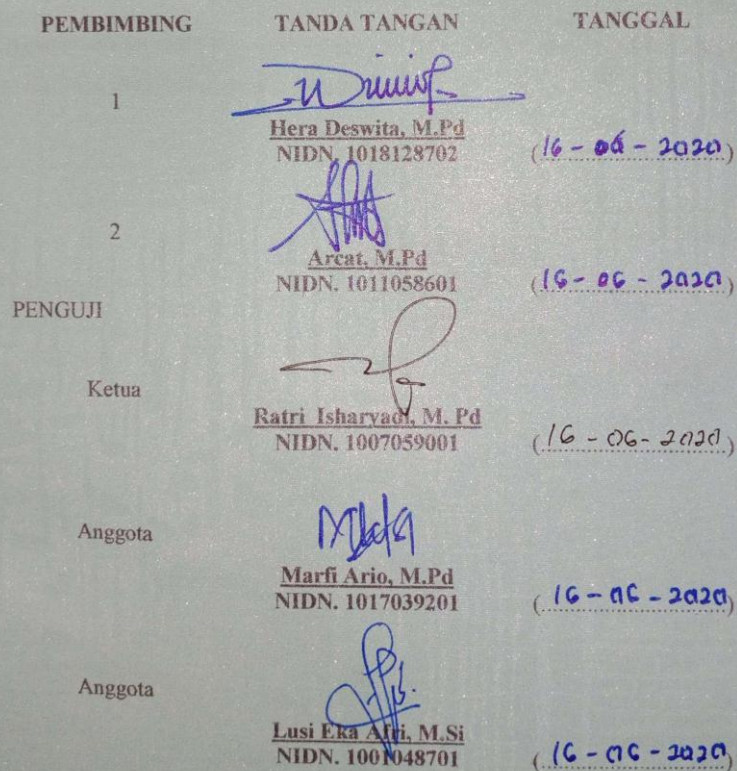 PEMBIMBING TANDA TANGAN TANGGAL
1
Hera Deswita, M.Pd
NIDN. 1018128702 (16 - 06 - 2020)
2
Arcat, M.Pd
NIDN. 1011058601 (16 - 06 - 2020)
PENGUJI
Ketua
Ratri Isharyadi, M. Pd
NIDN. 1007059001 (16 - 06 - 2020)
Anggota
Marfi Ario, M.Pd
NIDN. 1017039201 (16 - 06 - 2020)
Anggota
Lusi Eka Afri, M.Si
NIDN. 1001048701 (16 - 06 - 2020)